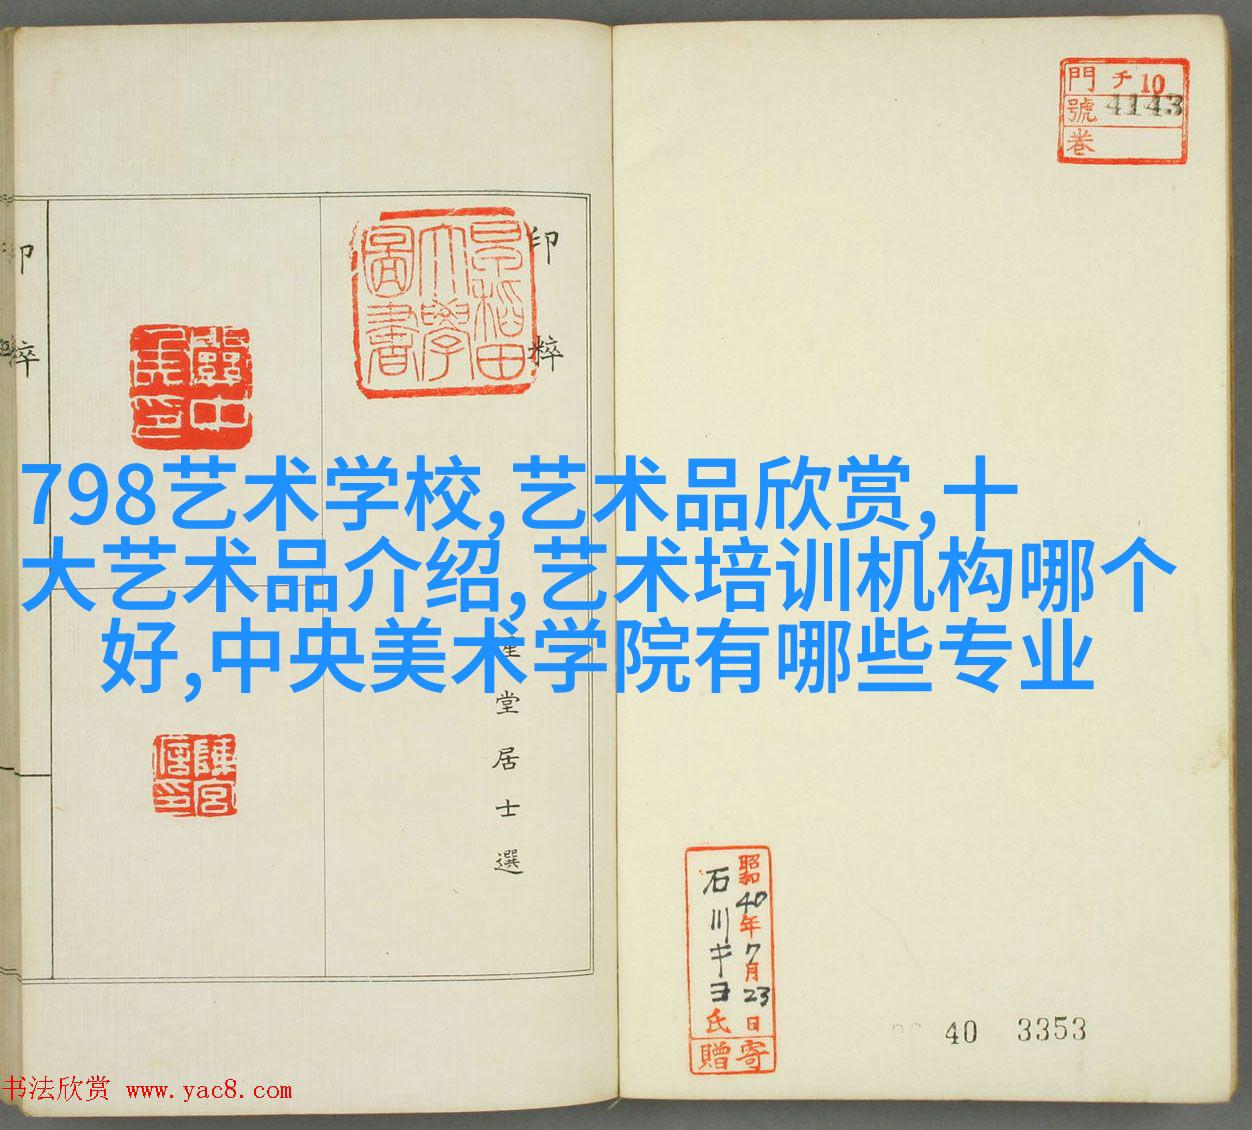 門 チ 10
號 4143
卷
印粹
印粹
早稻田
大學
圖書
798艺术学校,艺术品欣赏,十
大艺术品介绍,艺术培训机构哪个
好,中央美术学院有哪些专业
堂居士選
昭和40年7月23日
石川キヨ氏
寄贈
40 3353
书法欣赏 www.yac8.com